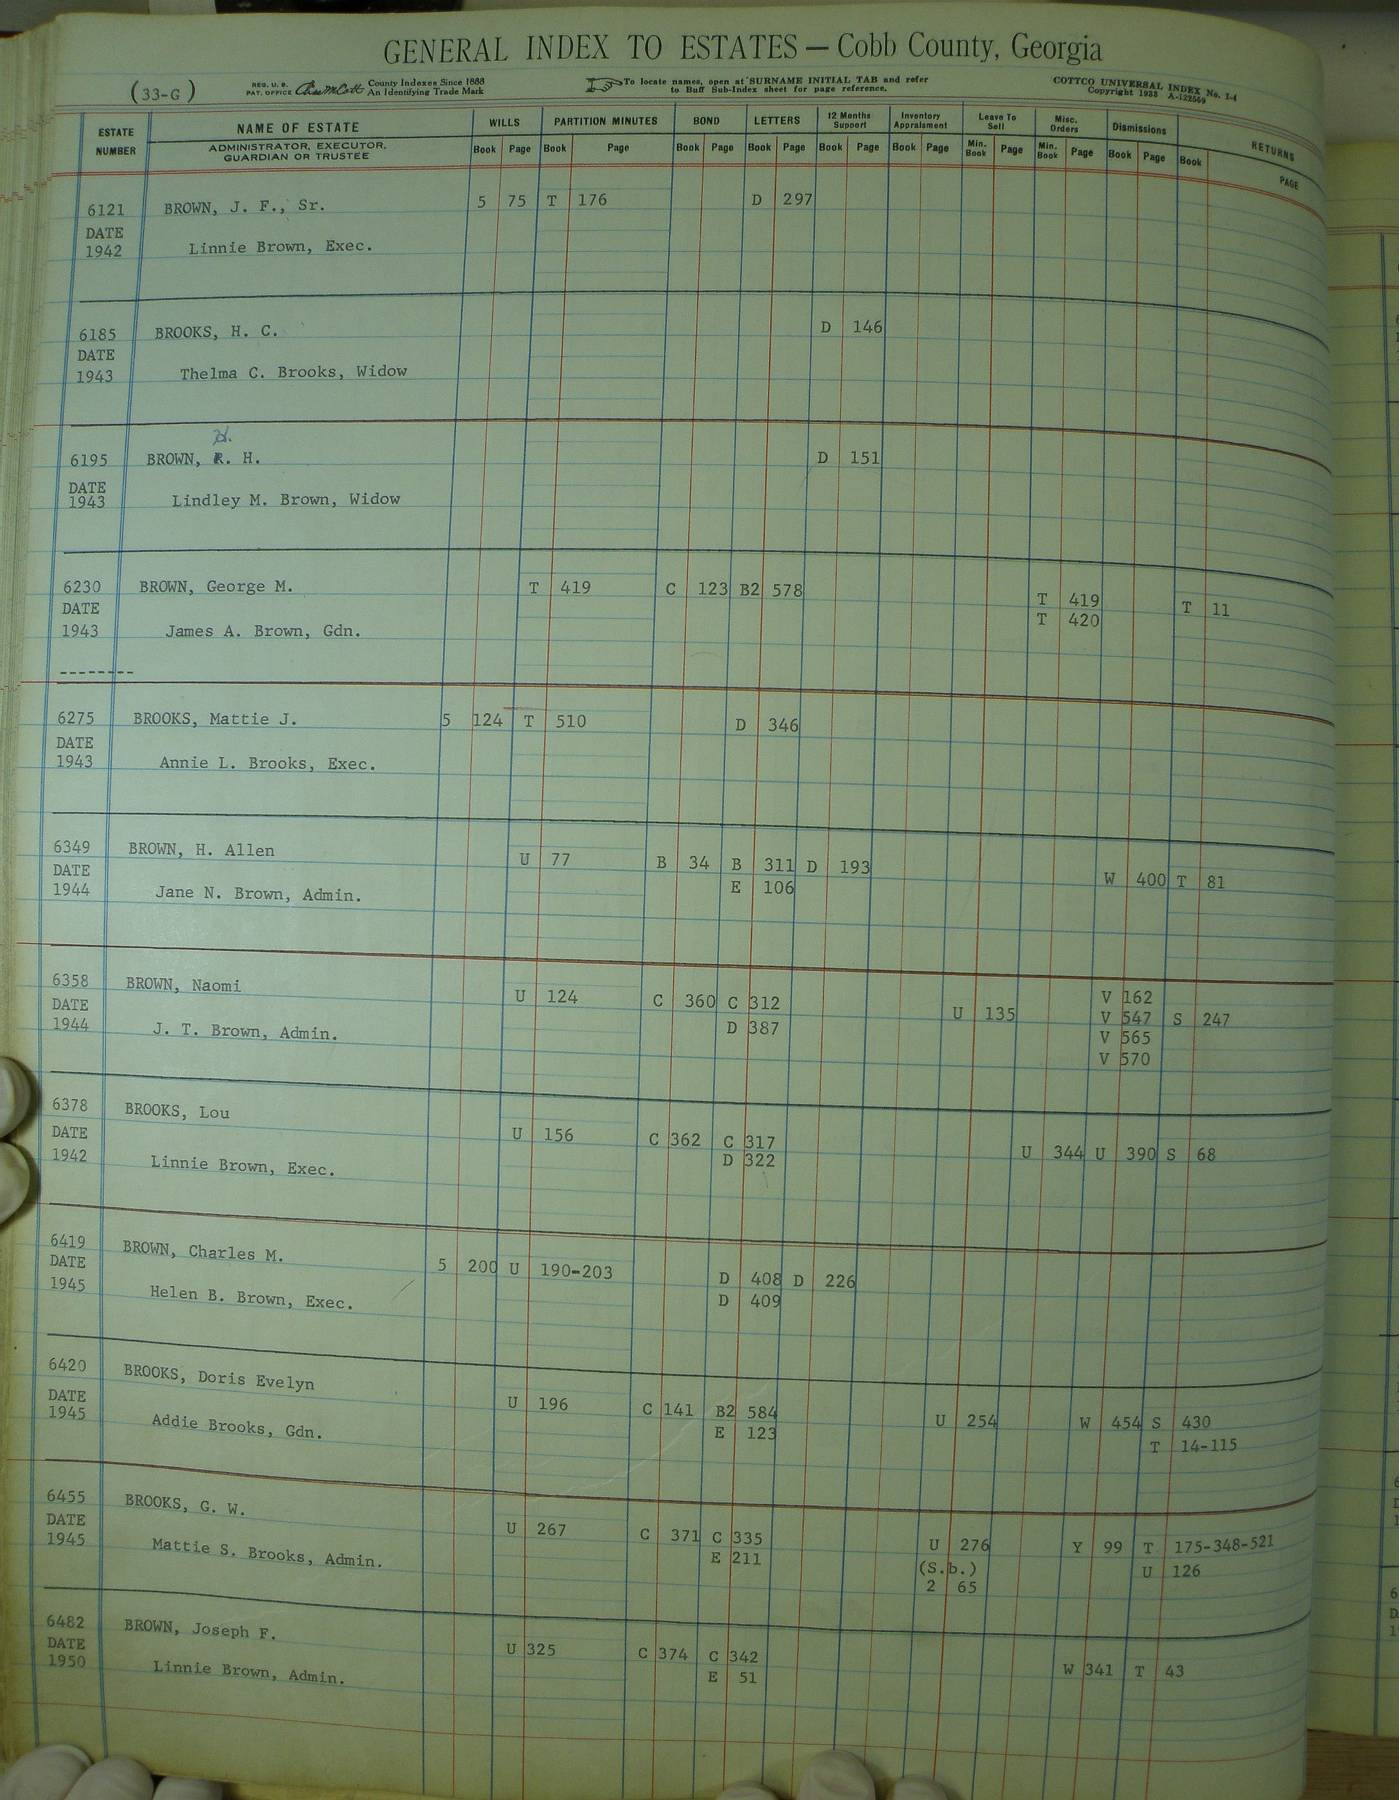 GENERAL INDEX TO ESTATES — Cobb County, Georgia
(33-G)
REG. U. S. PAT. OFFICE
County Indexes Since 1888
An Identifying Trade Mark
To locate names, open at SURNAME INITIAL TAB and refer
to Buff Sub-Index sheet for page reference.
COTTCO UNIVERSAL INDEX No. 1-4
Copyright 1933 A-122569
ESTATE NUMBER NAME OF ESTATE WILLS PARTITION MINUTES BOND LETTERS 12 Months Support Inventory Appraisment Leave To Sell Misc. Orders Dismissions RETURNS
ADMINISTRATOR, EXECUTOR, GUARDIAN OR TRUSTEE Book Page Book Page Book Page Book Page Book Page Book Page Min. Book Page Min. Book Page Book Page Book PAGE
6121 BROWN, J. F., Sr. 5 75 T 176 D 297
DATE
1942 Linnie Brown, Exec.
6185 BROOKS, H. C. D 146
DATE
1943 Thelma C. Brooks, Widow
H.
6195 BROWN, R. H. D 151
DATE
1943 Lindley M. Brown, Widow
6230 BROWN, George M. T 419 C 123 B2 578 T 419
DATE T 420 T 11
1943 James A. Brown, Gdn.
--------
6275 BROOKS, Mattie J. 5 124 T 510 D 346
DATE
1943 Annie L. Brooks, Exec.
6349 BROWN, H. Allen U 77 B 34 B 311 D 193 W 400 T 81
DATE E 106
1944 Jane N. Brown, Admin.
6358 BROWN, Naomi U 124 C 360 C 312 U 135 V 162
DATE D 387 V 547 S 247
1944 J. T. Brown, Admin. V 565
V 570
6378 BROOKS, Lou
DATE U 156 C 362 C 317 U 344 U 390 S 68
1942 Linnie Brown, Exec. D 322
6419 BROWN, Charles M.
DATE 5 200 U 190-203 D 408 D 226
1945 Helen B. Brown, Exec. D 409
6420 BROOKS, Doris Evelyn
DATE U 196 C 141 B2 584 U 254 W 454 S 430
1945 Addie Brooks, Gdn. E 123 T 14-115
6455 BROOKS, G. W.
DATE U 267 C 371 C 335 U 276 Y 99 T 175-348-521
1945 Mattie S. Brooks, Admin. E 211 (S.b.) U 126
2 65
6482 BROWN, Joseph F.
DATE U 325 C 374 C 342 W 341 T 43
1950 Linnie Brown, Admin. E 51